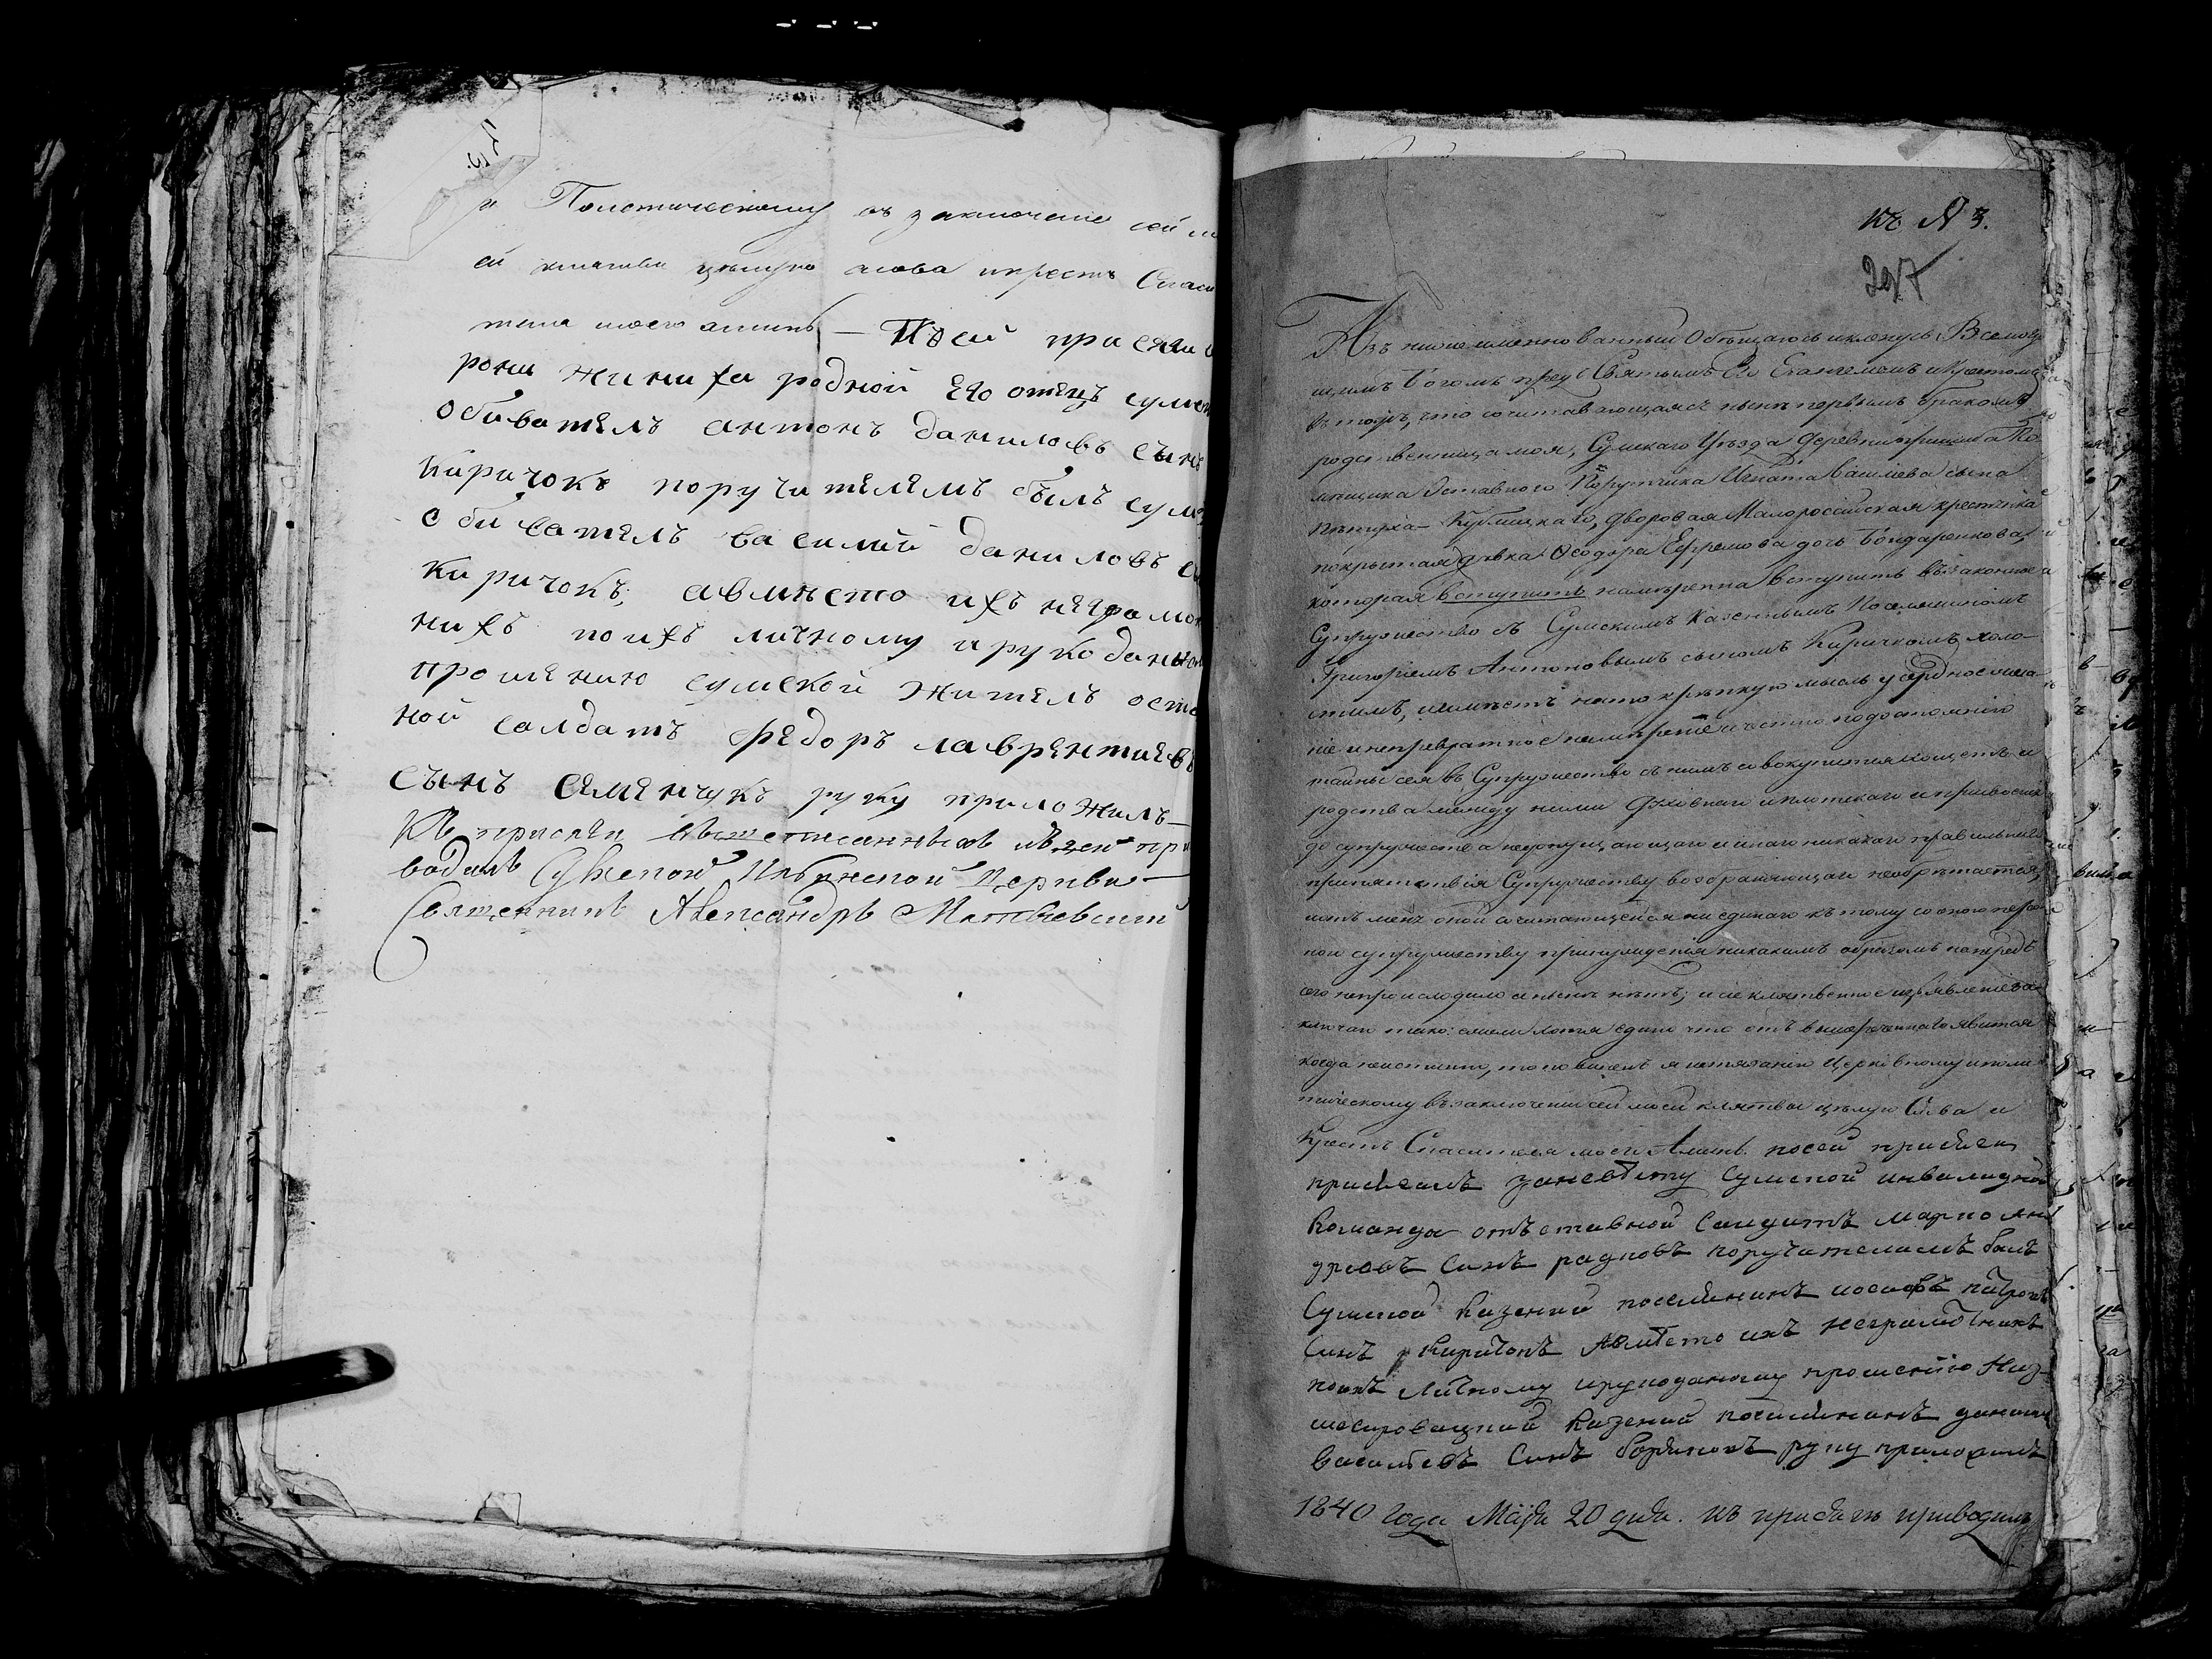 и Политическому въ заключение сей мо
ей клятвы целую слова и крестъ Спаси
теля моего аминь — Ксей присяги с
рони жиниха родной его отецъ сумск
обиватель антонъ даниловъ сынъ
Киричокъ поручителемъ былъ сумс
обиватель василий даниловъ сы
Киричокъ, авместо ихъ неграмот
нихъ поихъ личному ирукоданно
прошению сумской житель оста
ной салдатъ федоръ лаврентиевъ
сынъ семенчукъ руку приложилъ —
Къ присяги вышеписанныхъ лѣцей при
водилъ Сумской Ильинской Церкви
Священникъ Александръ
къ № 3.
247
Азъ нижеименнованный Обѣщаюсь иклянусь Всемогу
щимъ Богомъ предъ Святымъ Его Евангелиемъ иКрестомъ
въ томъ, что сочитавающаяся нынѣ первымъ бракомъ
родственница моя, Сумскаго Уѣзда деревни По
мѣщика Отставного Порутчика Игната Василева сына
Кублицкаго, дворовая Малоросийская крестянка
покрытая дѣвка Феодора Ефремова дочь Бондаренкова,
которая вступить намѣренна вступить възаконное
Супружество съ Сумскимъ Казеннымъ Поселяниномъ
Григорiемъ Антоновымъ сыномъ Киричкомъ холо-
стимъ, имѣетъ нато крѣпкую мысль усердное жела-
ние инепревратное намѣрение ичестно подостоянiю
тайны сея въ Супружество съ нимъ совокупится
родства между ними духовнаго иплотскаго
до супружества недопущающаго и инаго никакаго правильнаго
припятствiя Супружеству возбраняющаго необрѣтается,
иотъ мене оной сочитающейся ни единаго къ тому со оною пер-
ной супружеству принуждения никакимъ образомъ напредь
сего непроисходило инынѣ нѣтъ; исие клятвенное изъявленiе за
ключаю тако: ежели хотя едино что отъ вышереченнаго явится
когда неистинно, то повиненъ я истязанiю Церковному иполи
тическому въ заключенiи сей моей клятвы цѣлую Слова и
Крестъ Спасителя моего Аминь. посей присяги
присягалъ заневѣсту Сумской инвалидной
Команды отъставной Салдатъ марко ан
дреевъ Синъ радковъ поручителемъ балъ
Сумской Казений поселянинъ иосифъ
Синъ Киричокъ Авмѣсто ихъ неграмотнихъ
поихъ личному ирукоданому прошенiю Ниж-
несироваткий Казений поселянинъ данило
василѣевъ Синъ руку приложилъ
1840 Года Маiя 20 дня. къ присягѣ приводилъ